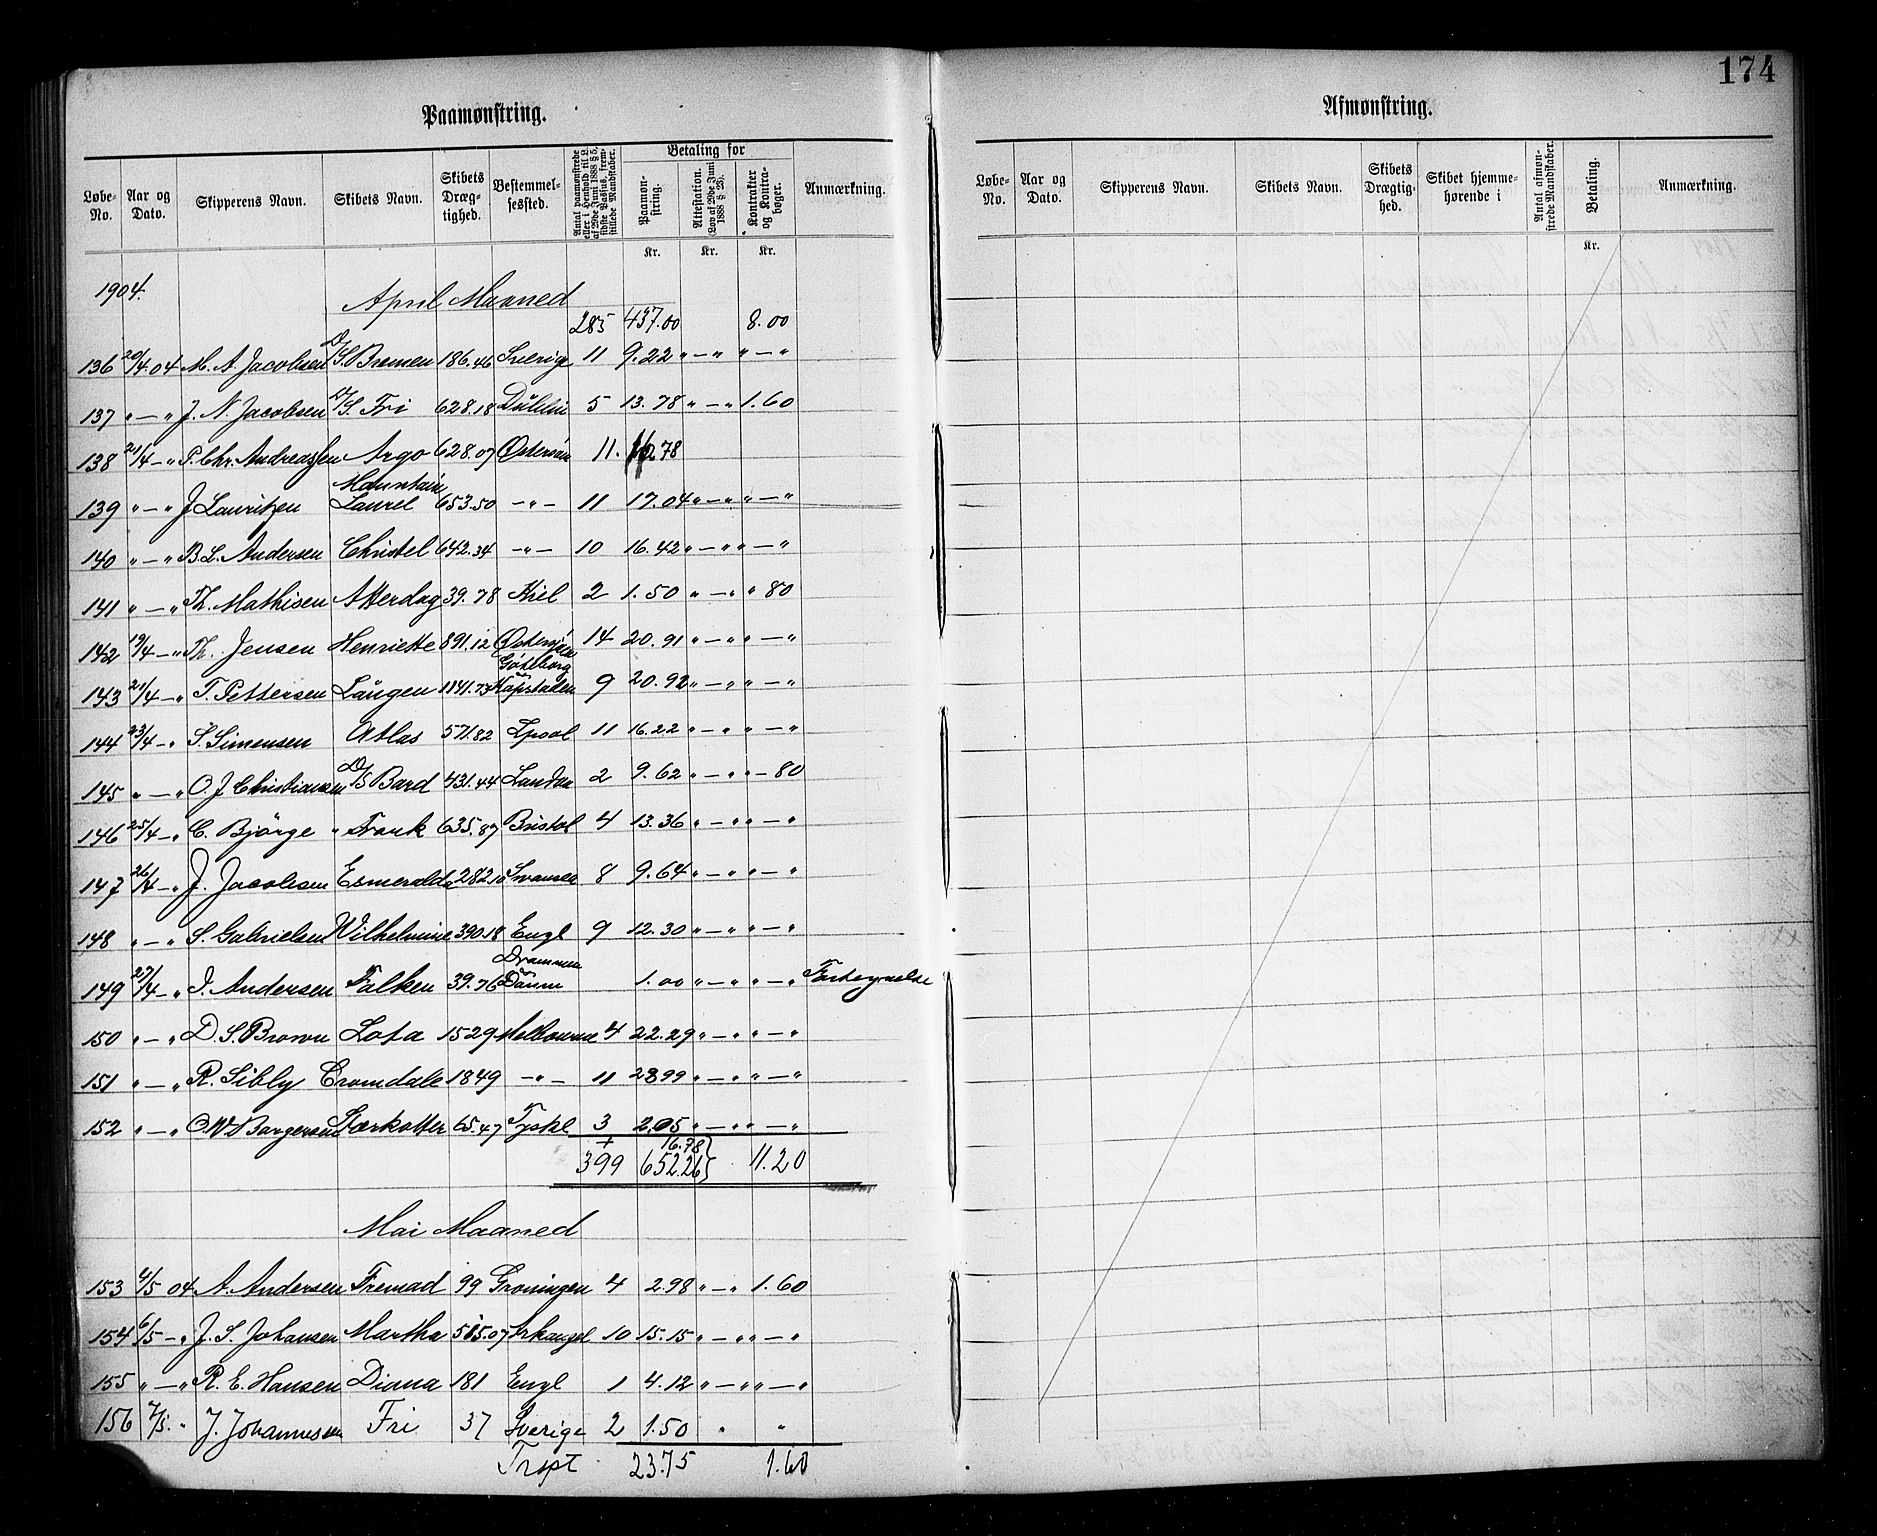 Paamønstring.
Løbe-No. Aar og Dato. Skipperens Navn. Skibets Navn. Skibets Dræg-tighed. Bestemmel-sessted. Antal paamønstrede eller i Henhold til L. af 29de Juni 1888 § 5, sidste Passus, frem-stillede Mandskaber. Betaling for Paamøn-string. Attestation. (Lov af 29de Juni 1888 § 23). Kontrakter og Kontra-bøger. Anmærkning.
Kr. Kr. Kr.
1904. April Maaned
285 437.00 8.00
136 20/4.04 M. A. Jacobsen D/S. Bremen 186.46 Sverige 11 9.22 " — " " — "
137 " — " J. N. Jacobsen D/S. Fri 628.18 Dublin 5 13.78 " — " 1.60
138 21/4 — " P. Chr. Andreassen Argo 628.07 11. 16.78
139 " — " J Lauritzen Mountain Laurel 653.50 — " — 11 17.04 " — " " — "
140 " — " B. L. Andersen Christel 642.34 — " — 10 16.42 " — " " — "
141 " — " Th. Mathisen Atterdag 39.78 Kiel 2 1.50 " — " " 80
142 19/4 — " Th. Jensen Henriette 891.12 Østersjøen 14 20.91 " — " " — "
143 21/4 — " T. Pettersen Laugen 1841.73 Gøteborg Kapstaden 9 20.92 " — " " — "
144 23/4 — " S. Simensen Atlas 571.82 Lpool 11 16.22 " — " " — "
145 " — " O. J Christiansen D/S Bard 431.44 London 2 9.62 " — " " — 80
146 25/4 — " C. Bjørge " Frank 635.87 Bristol 4 13.36 " — " " — "
147 26/4 — " J. Jacobsen Esmeralda 282.10 Swansea 8 9.64 " — " " — "
148 " — " S. Gabrielsen Wilhelmine 390.18 Engl 9 12.30 " — " " — "
149 27/4 — " J. Andersen Falken 39.76 Drammen 1.00 " — " " — "
150 " — " D. S. Brown Lota 1529 Melbourne 4 22.29 " — " " — "
151 " — " R. Sibly Cromdale 1849 — " — 11 28.99 " — " " — "
152 " — " Stærkotter 65.47 Tyskl 3 2.05 " — " " — "
+ 16.78
399 652.26 11.20
Mai Maaned
153 4/5 04 A. Andersen Fremad 99 Groningen 4 2.98 " — " 1.60
154 6/5 — " J. S. Johansen Martha 515.07 Arkangel 10 15.15 " — " " — "
155 " — " R. E. Hansen Diana 181 Engl 1 4.12 " — " " — "
156 7/5. " J. Johannessen Fri 37 Sverige 2 1.50 " "
Trspt 23.75 1.60
174
Afmønstring.
Løbe-No. Aar og Dato. Skipperens Navn. Skibets Navn. Skibets Drægtig-hed. Skibet hjemme-hørende i Antal afmøn-strede Mandskaber. Betaling. Anmærkning.
Kr.